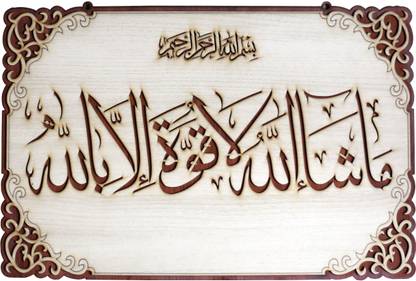 بسم الله الرحمن الرحيم
ما شاء الله لا قوة إلا بالله